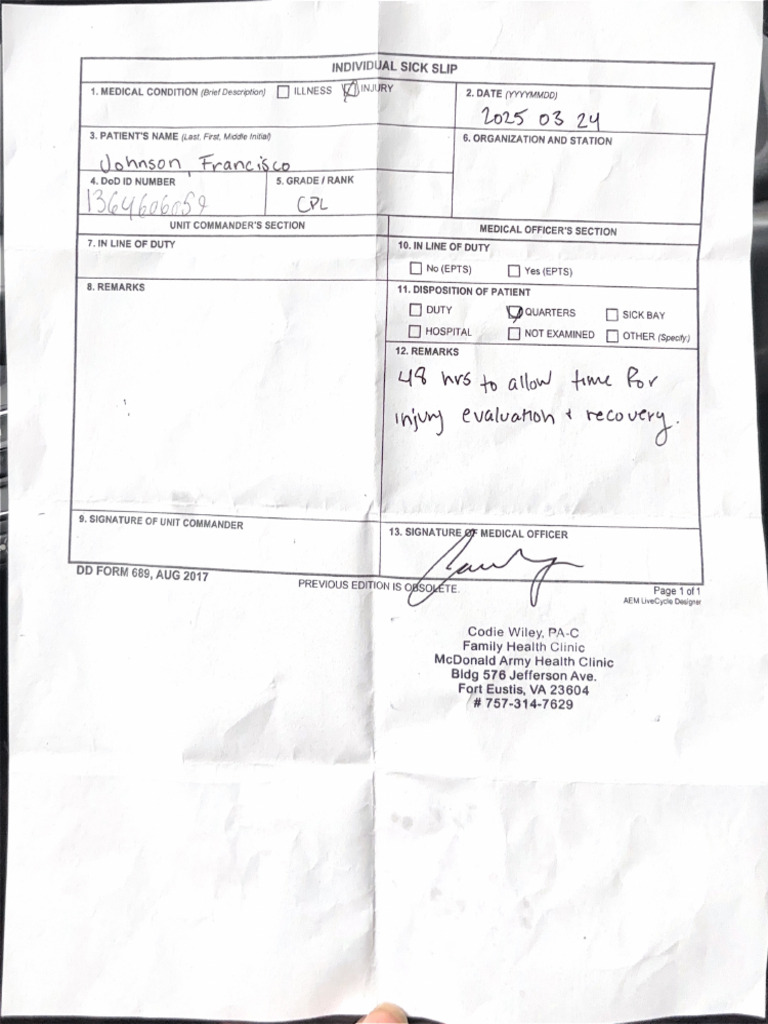 INDIVIDUAL SICK SLIP
1. MEDICAL CONDITION (Brief Description) ILLNESS INJURY
2. DATE (YYYYMMDD)
2025 03 24
3. PATIENT'S NAME (Last, First, Middle Initial)
Johnson, Francisco
6. ORGANIZATION AND STATION
4. DoD ID NUMBER
5. GRADE / RANK
CPL
UNIT COMMANDER'S SECTION
MEDICAL OFFICER'S SECTION
7. IN LINE OF DUTY
10. IN LINE OF DUTY
No (EPTS) Yes (EPTS)
8. REMARKS
11. DISPOSITION OF PATIENT
DUTY QUARTERS SICK BAY
HOSPITAL NOT EXAMINED OTHER (Specify)
12. REMARKS
48 hrs to allow time for
injury evaluation + recovery.
9. SIGNATURE OF UNIT COMMANDER
13. SIGNATURE OF MEDICAL OFFICER
DD FORM 689, AUG 2017
PREVIOUS EDITION IS OBSOLETE.
Page 1 of 1
AEM LiveCycle Designer
Codie Wiley, PA-C
Family Health Clinic
McDonald Army Health Clinic
Bldg 576 Jefferson Ave.
Fort Eustis, VA 23604
# 757-314-7629